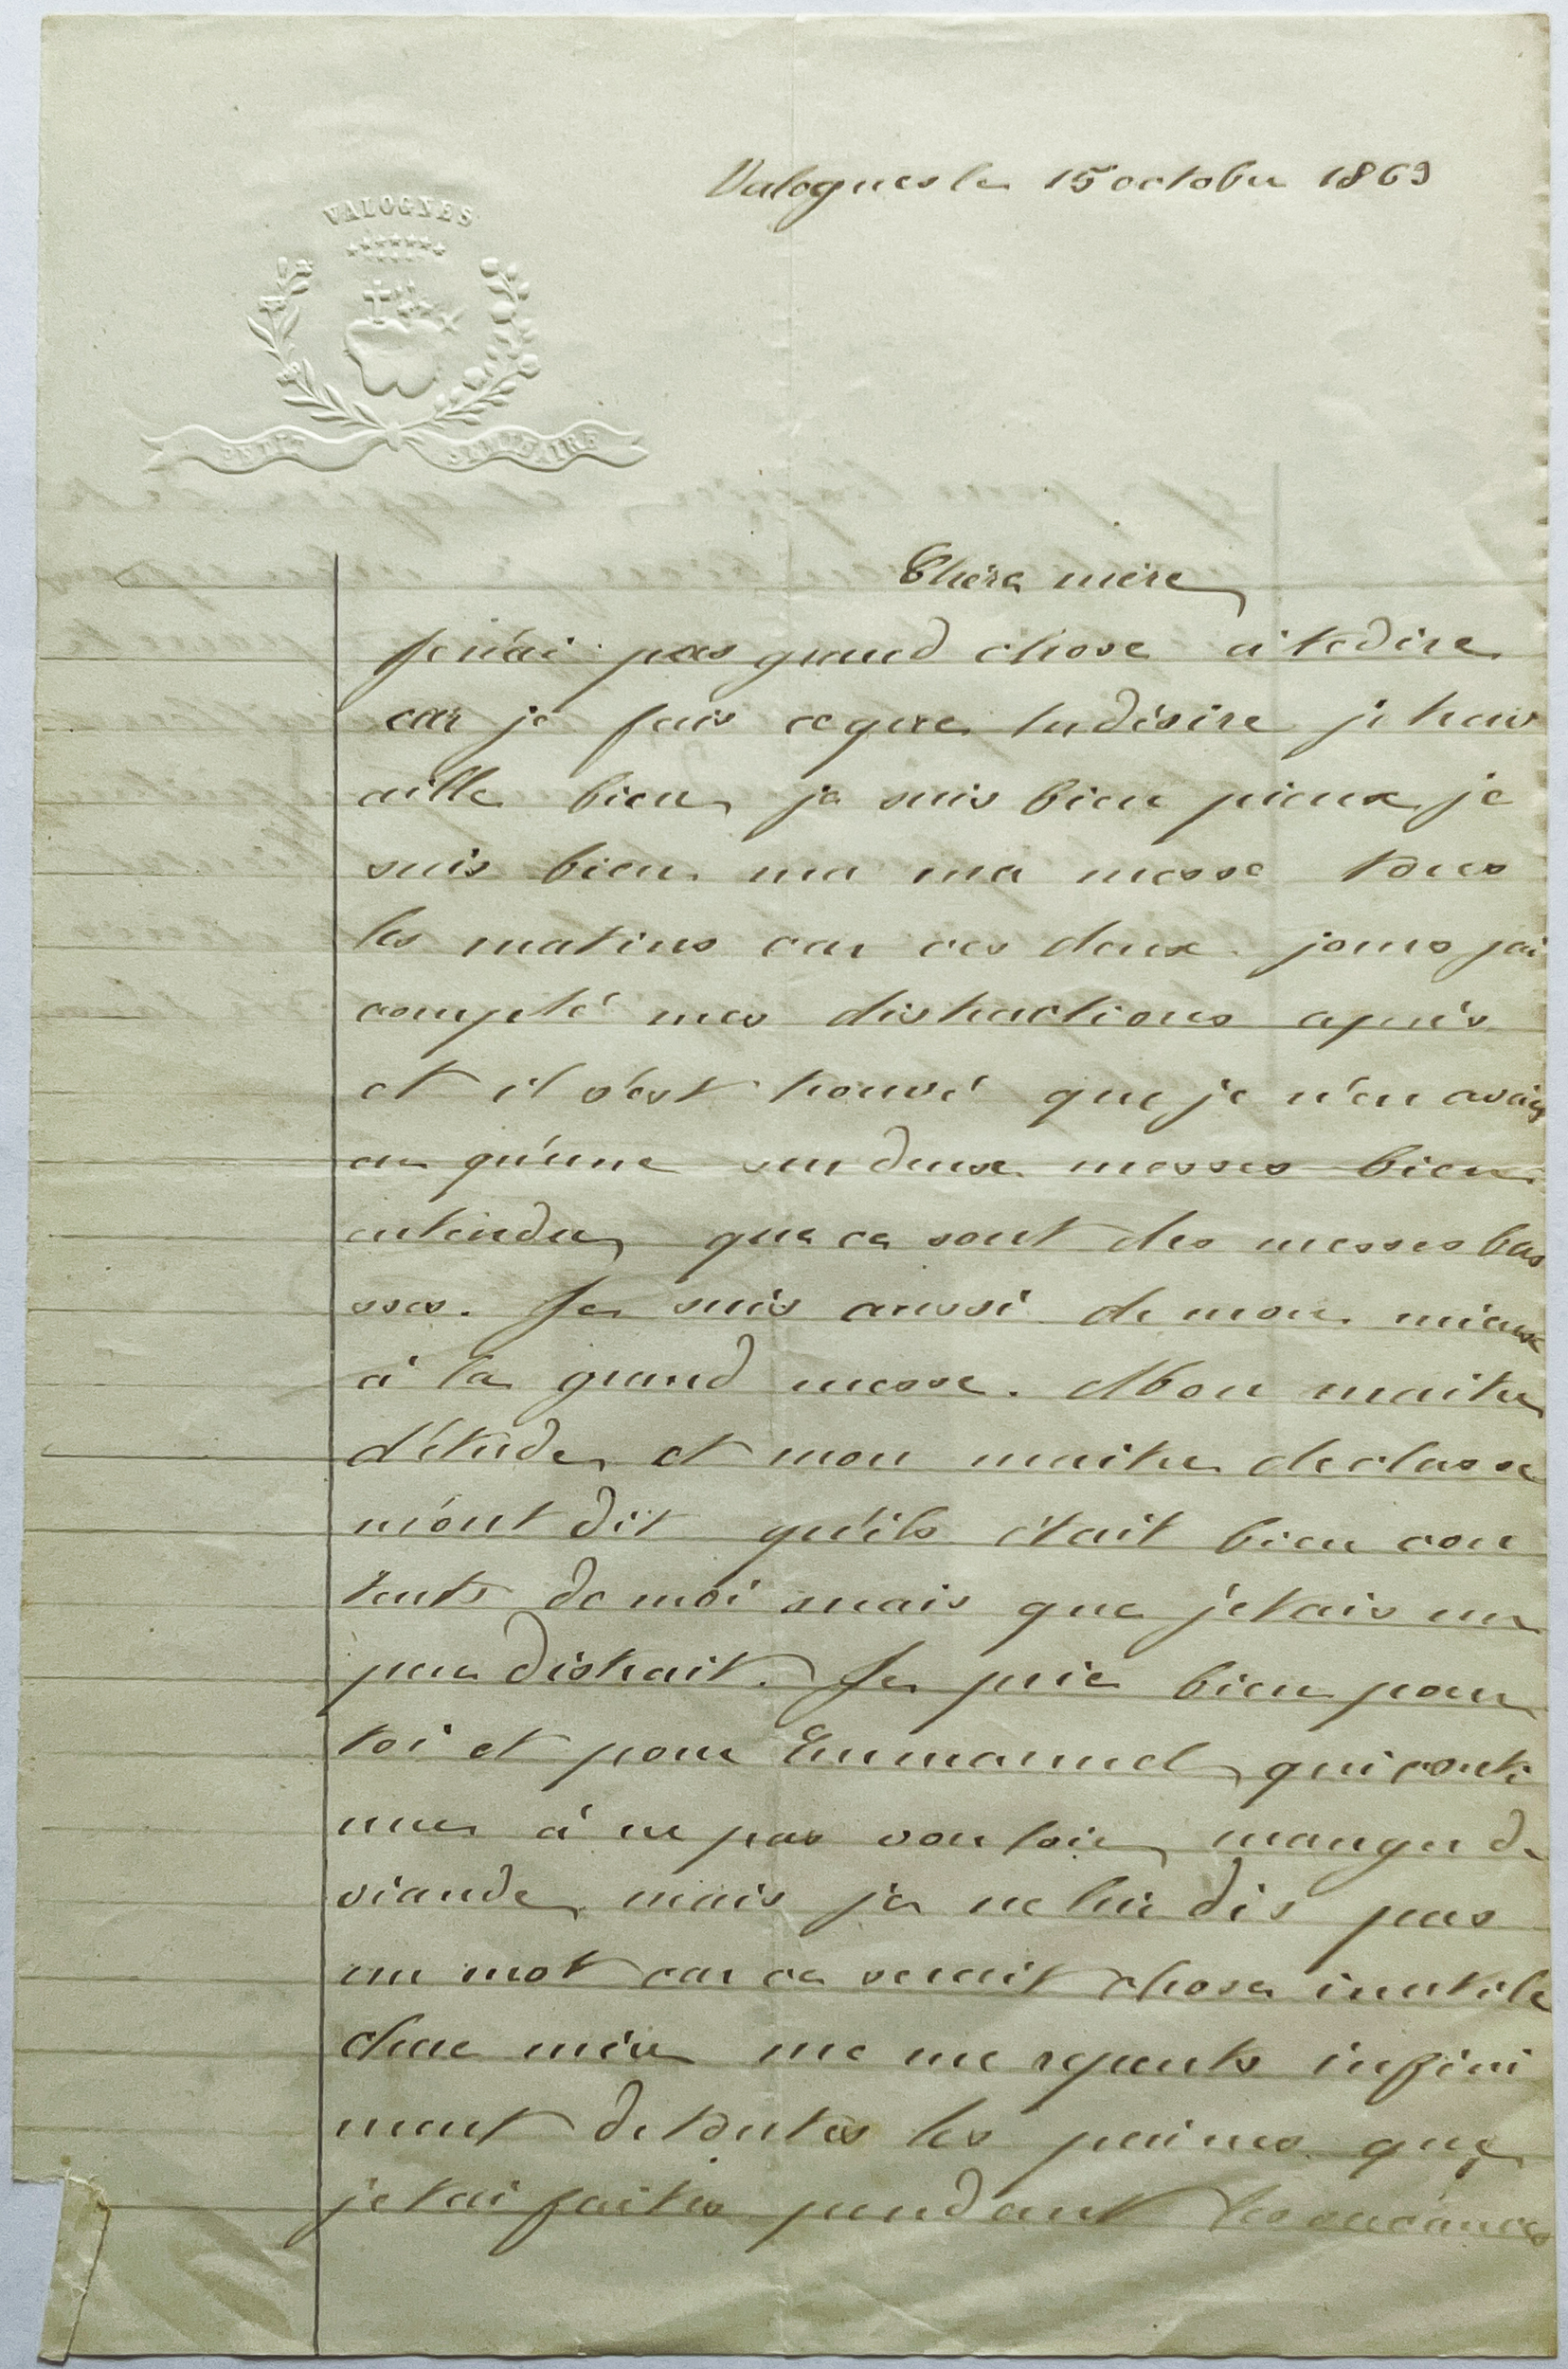 VALOGNES
PETIT SÉMINAIRE
Valognes le 15 octobre 1869
Chère mère
Je n'ai pas grand chose à te dire
car je fais ce que tu désire je trav
aille bien je suis bien pieux je
suis bien ma ma messe tous
les matins car ces deux jours j'ai
compté mes distractions après
et il s'est trouvé que je n'en avais
eu qu'une en deux messes bien
entendu que ce sont des messes bas
sses. Je suis aussi de mon mieux
à la grand messe. Mon maitre
d'étude et mon maitre de classe
m'ont dit qu'ils était bien con
tents de moi mais que j'etais un
peu distrait. Je prie bien pour
toi et pour Emmanuel qui conti
nue à ne pas vouloir manger de
viande mais je ne lui dis pas
un mot car ce serait chose inutile
chere mère me me repents infini
ment de toutes les peines que
je t'ai faites pendant les vacances